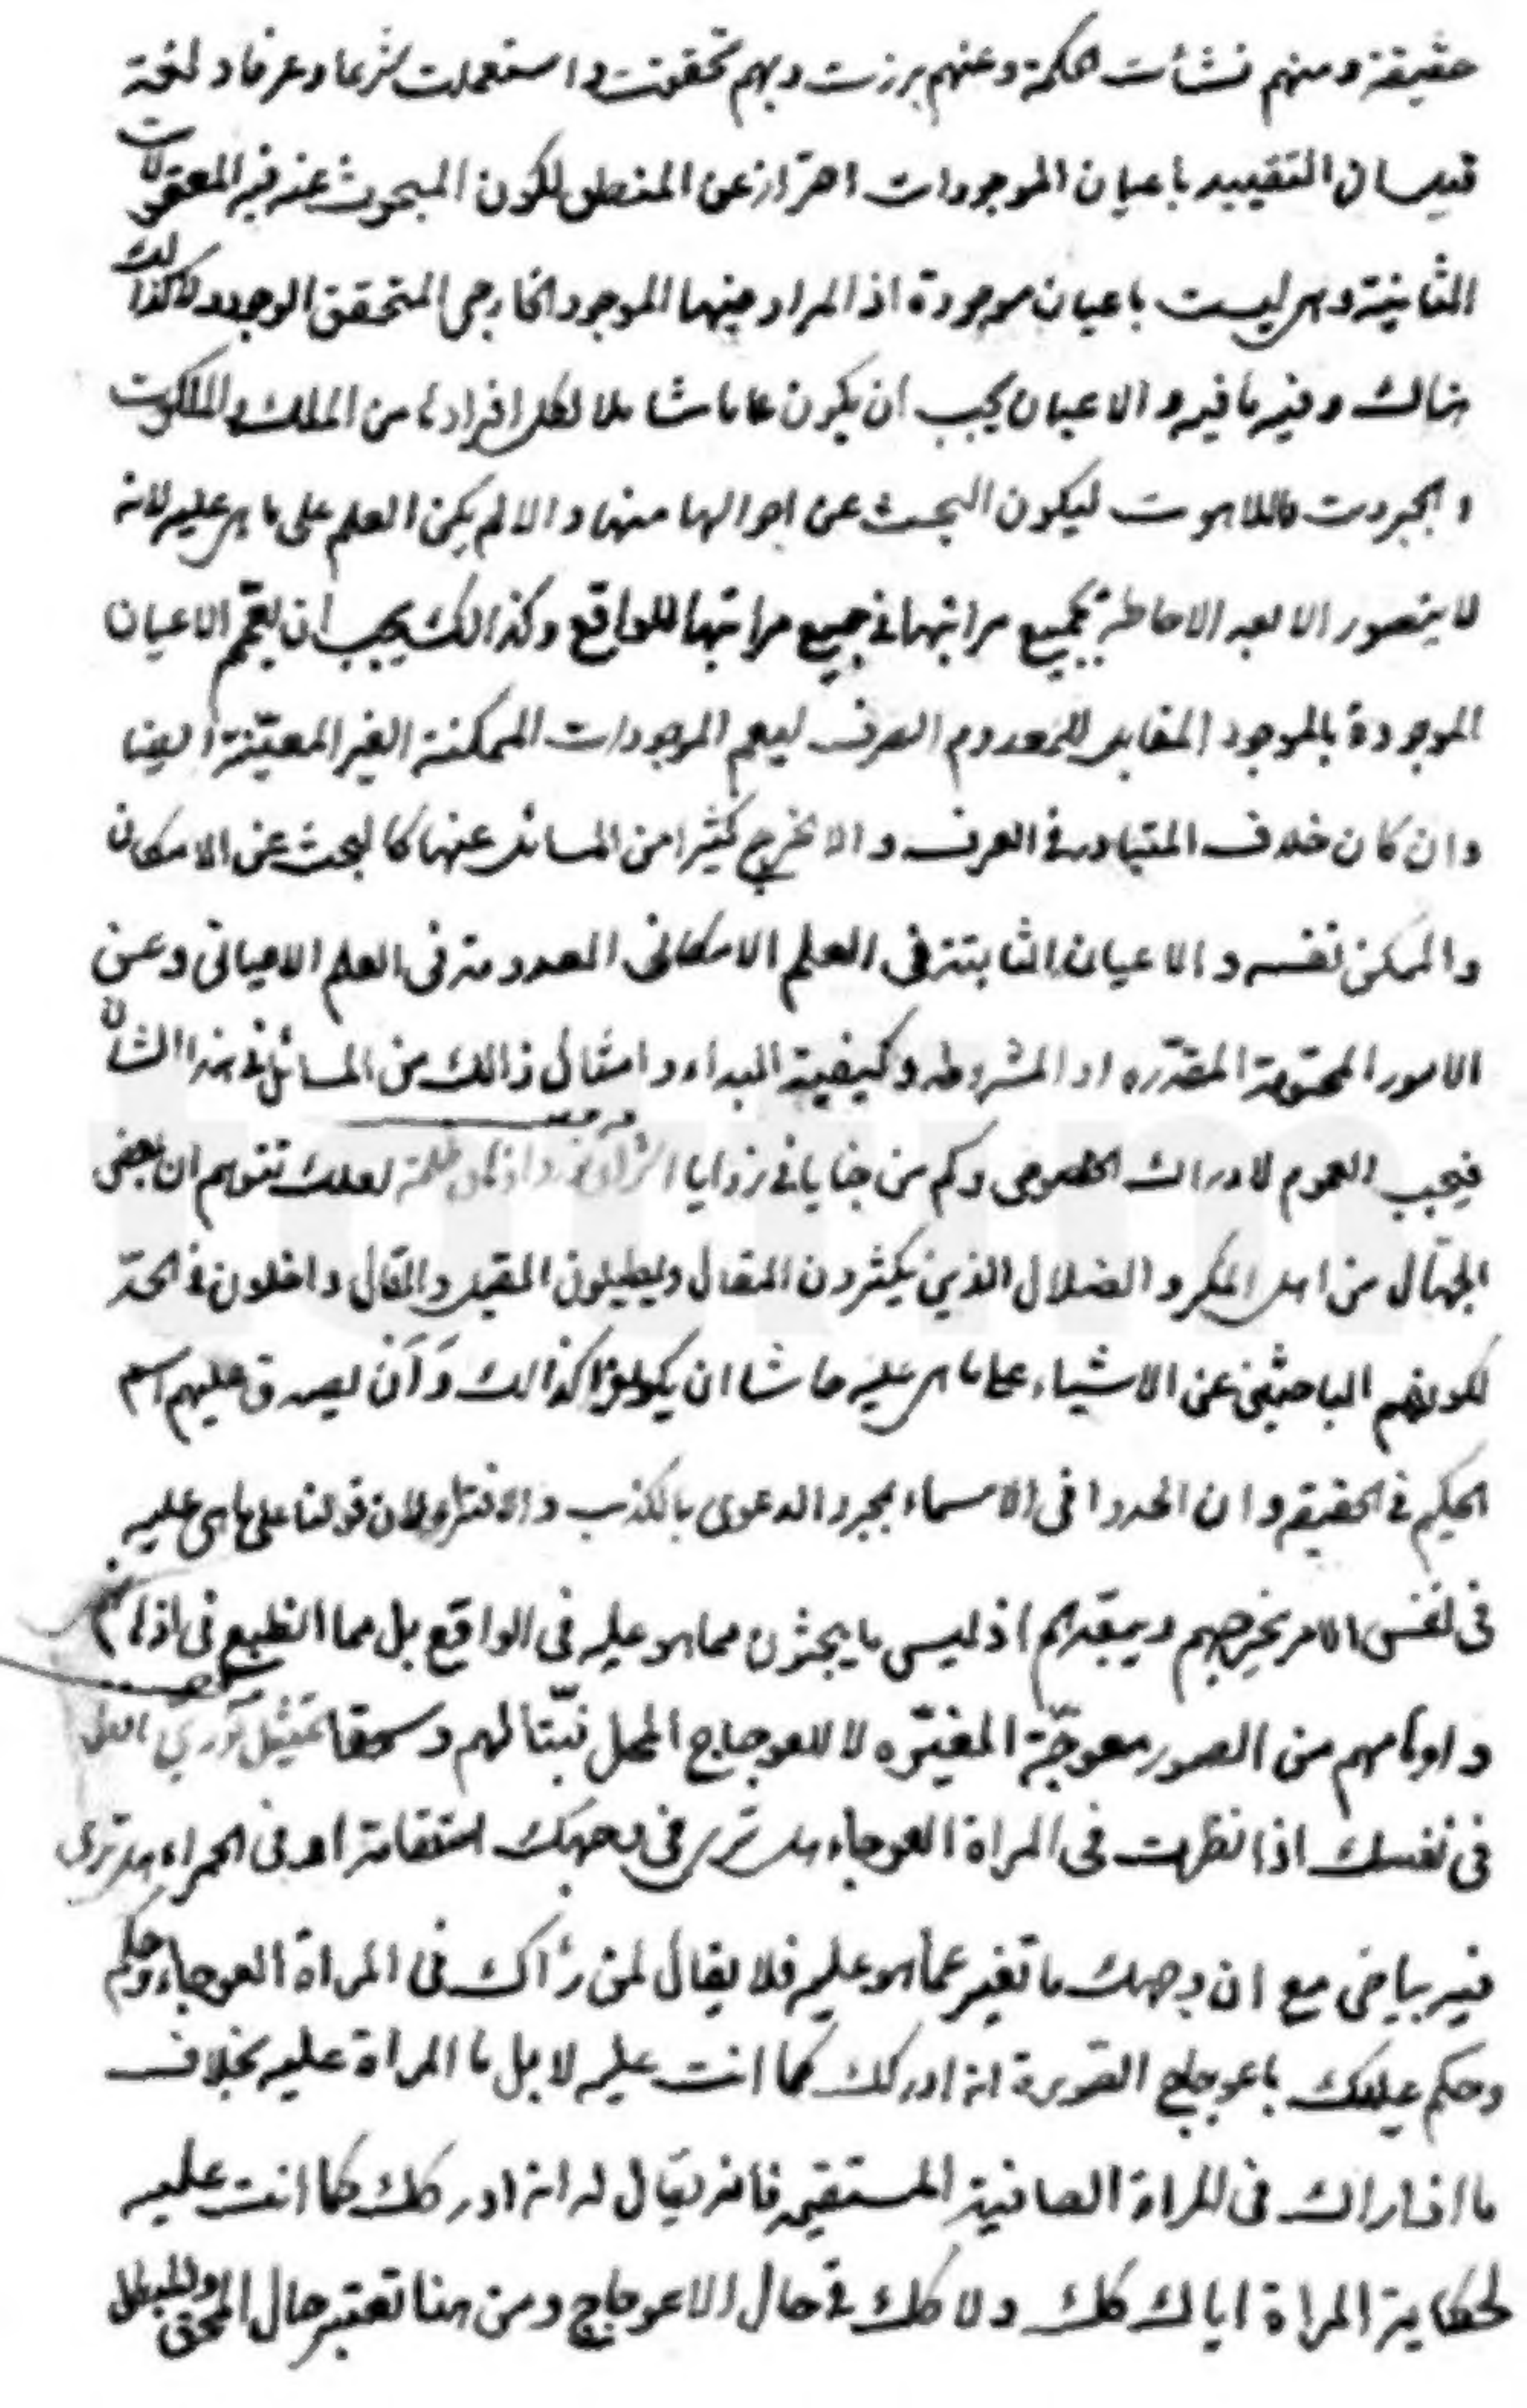 حقيقة ومنهم نشأت الحكمة وعنهم برزت وبهم تحققت واستعملت شرعا وعرفا ولغة
قيل ان التقييد باعيان الموجودات احتراز عن المنطق لكون المبحوث عنه فيه المعقولات
الثانية وهي ليست باعيان موجودة اذ المراد منها الموجود الخارجي المتحقق الوجود ولا كذلك
هنالك وفيه ما فيه و الاعيان يجب ان يكون عاما شاملا لكل افرادها من الملك والملكوت
والجبروت واللاهوت ليكون البحث عن احوالها منها والا لم يكن العلم على ما هي عليه لانه
لا يتصور الا بعد الاحاطة بجميع مراتبها في جميع مراتبها للواقع وكذالك يجب ان يعمّم الاعيان
الموجودة بالموجود المقابل للمعدوم الصرف ليعم الموجودات الممكنة الغير المعيّنة ايضا
وان كان خلاف المتبادر في العرف والا لخرج كثيرا من المسائل عنها كالبحث عن الامكان
والممكن نفسه و الاعيان الثابتة في العلم الامكاني المعدومة في العلم الاعياني وعن
الامور المحتومة المقدّره او المشروطه وكيفية البداء وامثال ذالك من المسائل في هذا الشأن
فيجب العموم لادراك الخصوص وكم من خبايا في زوايا لعلك تتوهم ان بعض
الجهّال من اهل المكر و الضلال الذين يكثرون المقال ويطيلون القيل والقال داخلون في الحدّ
لكونهم الباحثين عن الاشياء على ما هي عليه حاشا ان يكونوا كذالك وَاَنّ يصدق عليهم اسم
الحكيم في الحقيقه وان الحدوا في الاسماء بمجرد الدعوى بالكذب والافتراء ولان قولنا على ما هي عليه
في نفس الامر يخرجهم ويبعّدهم اذ ليس ما يبحثون مما هو عليه في الواقع بل مما انطبع في اذهانهم
واوهامهم من الصور معوجّة المغيّره لا للاعوجاج المحل فتبّا لهم وسحقا
في نفسك اذا نظرت في المرآة العوجاء هل ترى في وجهك استقامة او في الحمراء هل ترى
فيه بياض مع ان وجهك ما تغير عما هو عليه فلا يقال لمن رأاك في المرآة العوجاء وحكم
وحكم عليك باعوجاج الصّورة انه ادركك كما انت عليه لا بل ما المرآة عليه بخلاف
ما اذا راك في المراة الصافية المستقيمه فانه يقال له انه ادركك كما انت عليه
لحكاية المرآة اياك كك ولا كك في حال الاعوجاج ومن هنا تعتبر حال المحق والمبطل